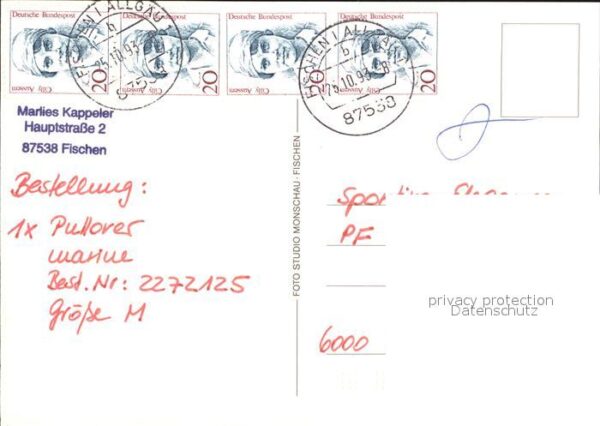 Deutsche Bundespost Deutsche Bundespost Deutsche Bundespost Deutsche Bundespost
Cilly Aussem 20 Cilly Aussem 20 Cilly Aussem 20 Cilly Aussem 20
FISCHEN I. ALLGÄU
b
25.10.93
8753
FISCHEN I. ALLGÄU
b
10.93
87538
Marlies Kappeler
Hauptstraße 2
87538 Fischen
Bestellung:
1x Pullover
marine
Best. Nr: 2272125
Größe M
FOTO STUDIO MONSCHAU · FISCHEN
PF
6000
privacy protection
Datenschutz